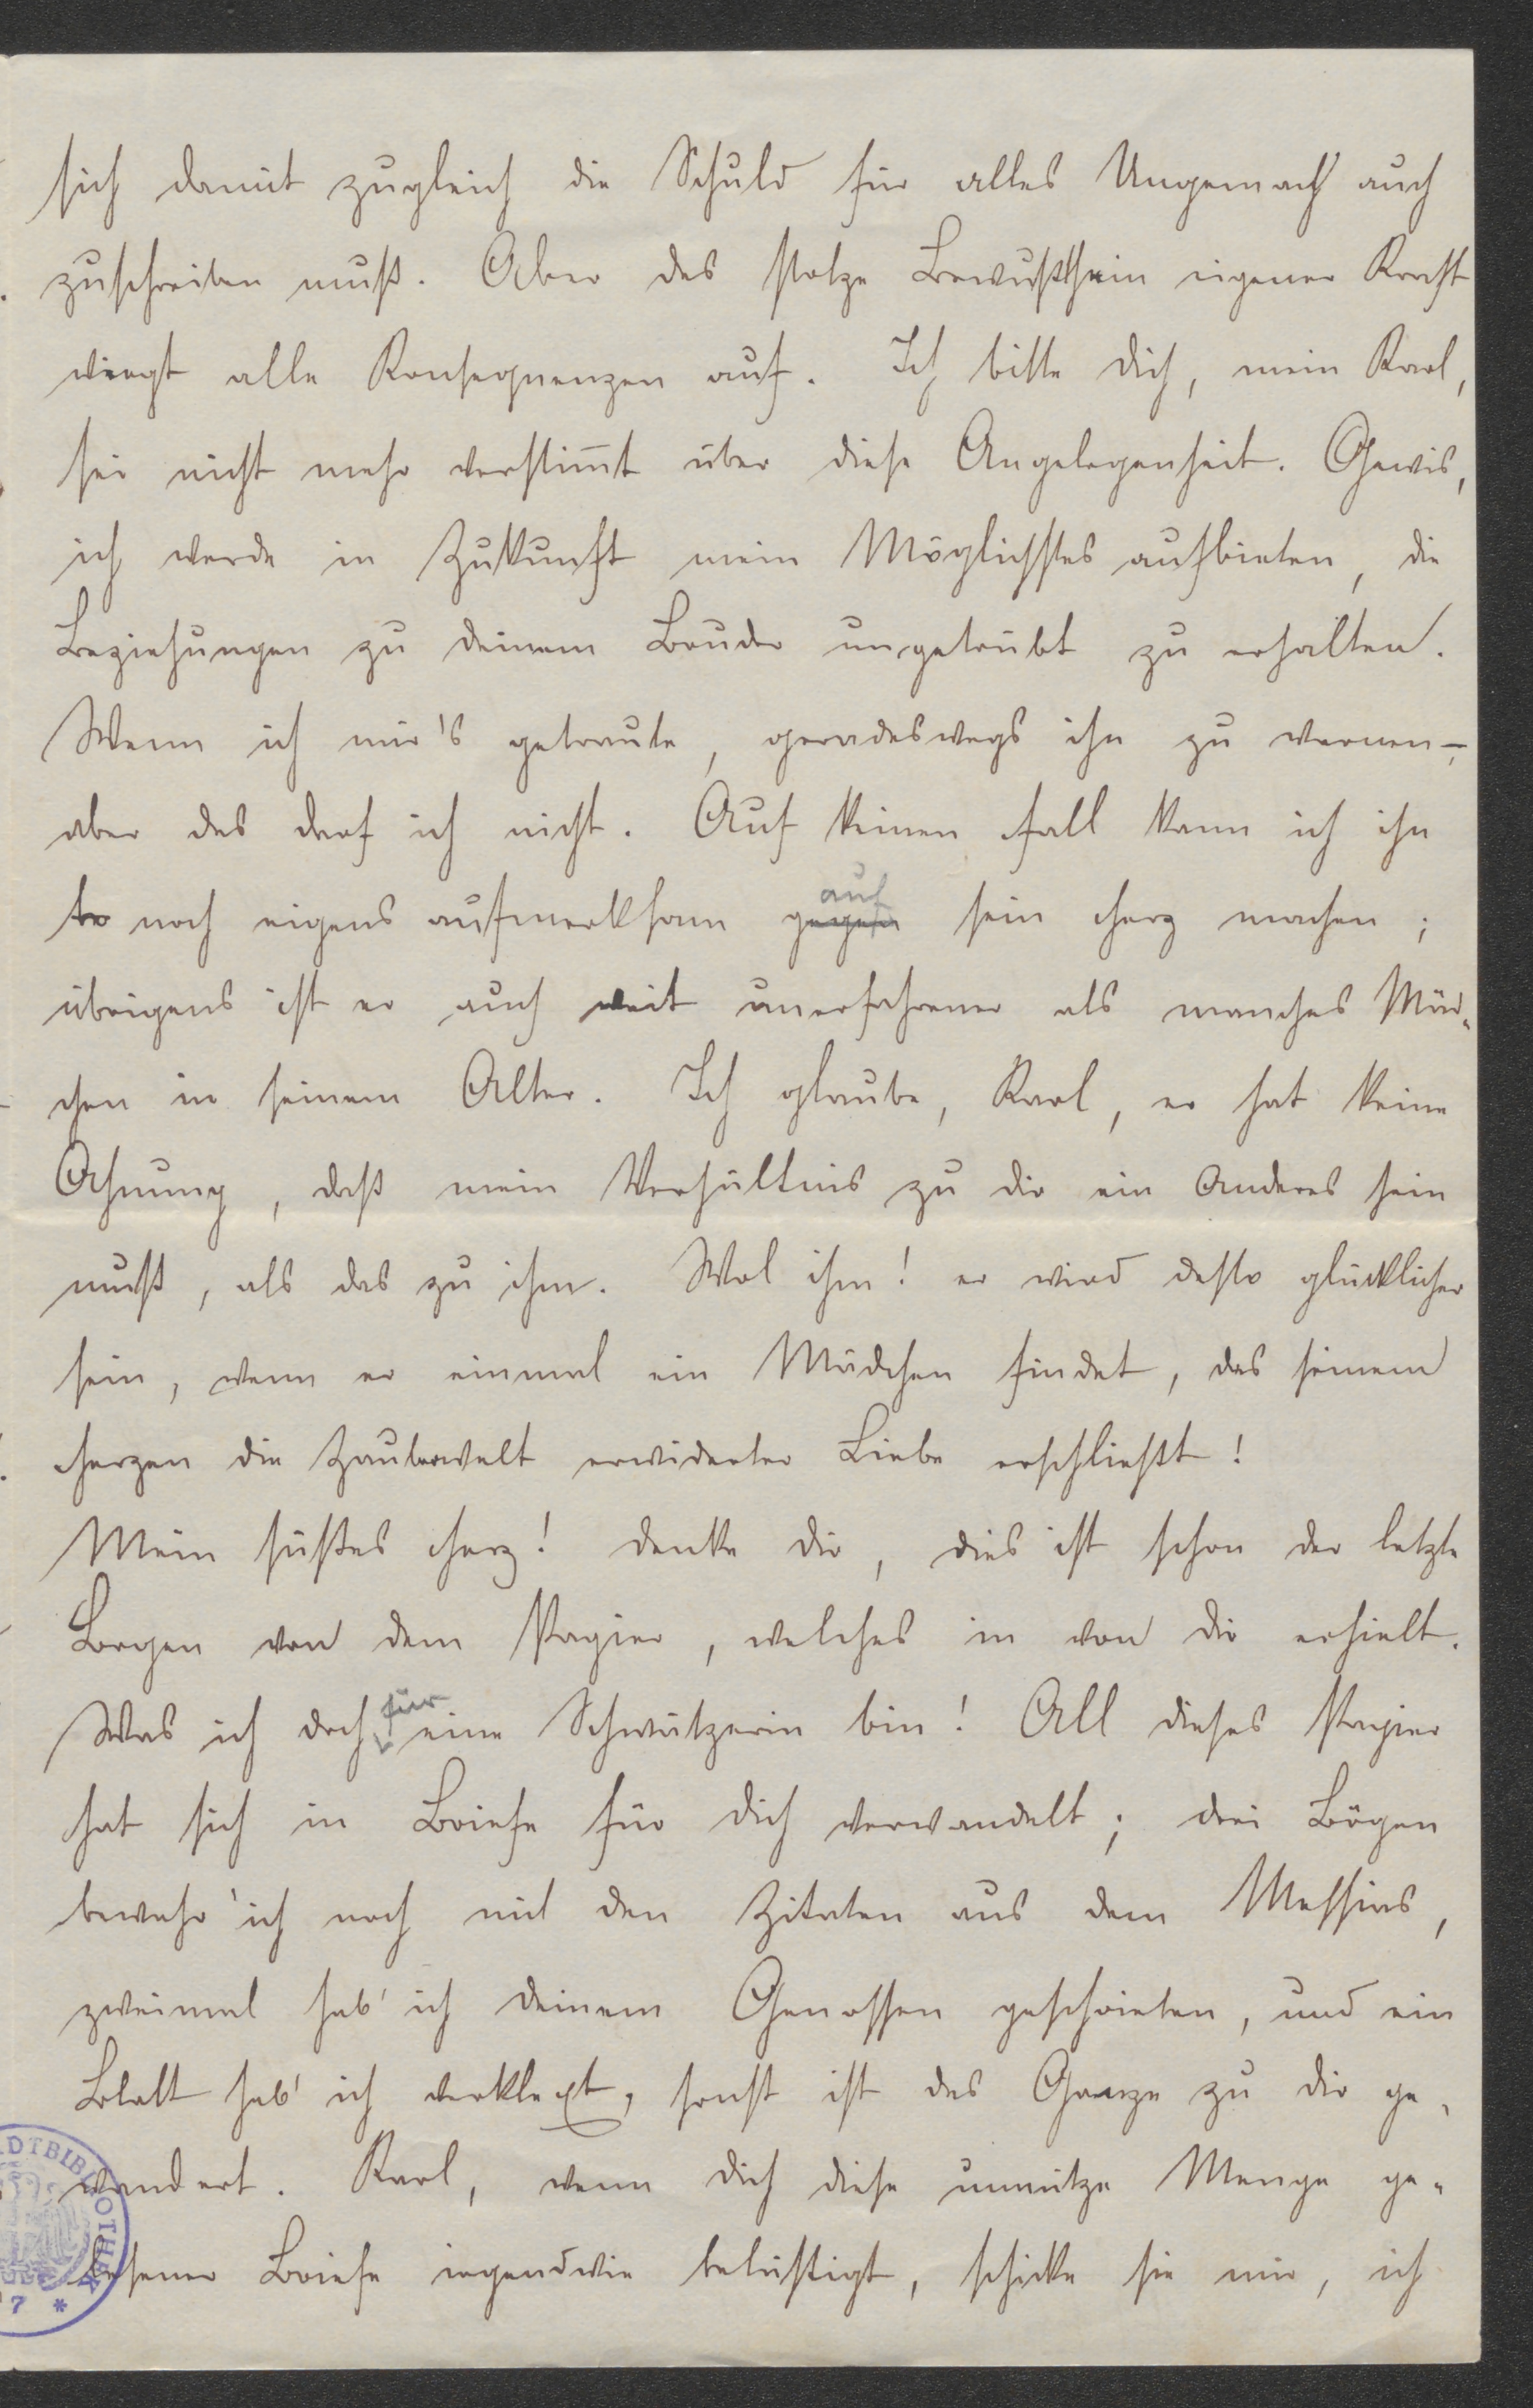 sich damit zugleich die Schuld für alles Ungemach auch
zuschreiben muß. Aber das stolze Bewußtsein eigener Kraft
wiegt alle Konsequenzen auf. Ich bitte dich, mein Karl,
sei nicht mehr verstim̅t über diese Angelegenheit. Gewis,
ich werde in Zukunft mein Möglichstes aufbieten, die
Beziehungen zu deinem Bruder ungetrübt zu erhalten.
Wenn ich mir's getraute, geradeswegs ihn zu warnen –,
aber das darf ich nicht. Auf keinen Fall kann ich ihn
noch eigens aufmerksam gegen auf sein Herz machen;
übrigens ist er auch weit unerfahrener als manches Mäd-
chen in seinem Alter. Ich glaube, Karl, er hat keine
Ahnung, daß mein Verhältnis zu dir ein Anderes sein
muß, als das zu ihm. Wol ihm! er wird desto glücklicher
sein, wenn er einmal ein Mädchen findet, das seinem
Herzen die Zauberwelt erwiderter Liebe erschließt!
Mein süßes Herz! denke dir, dies ist schon der letzte
Bogen von dem Papier, welches in von dir erhielt.
Was ich doch für eine Schwätzerin bin! All dieses Papier
hat sich in Briefe für dich verwandelt; drei Bögen
bewahr' ich noch mit den Zitaten aus dem Messias,
zweimal hab' ich deinem Genossen geschrieben, und ein
Blatt hab' ich verklext, sonst ist das Ganze zu dir ge-
wandert. Karl, wenn dich diese unnütze Menge ge-
lesener Briefe irgendwie belästigt, schicke sie mir, ich